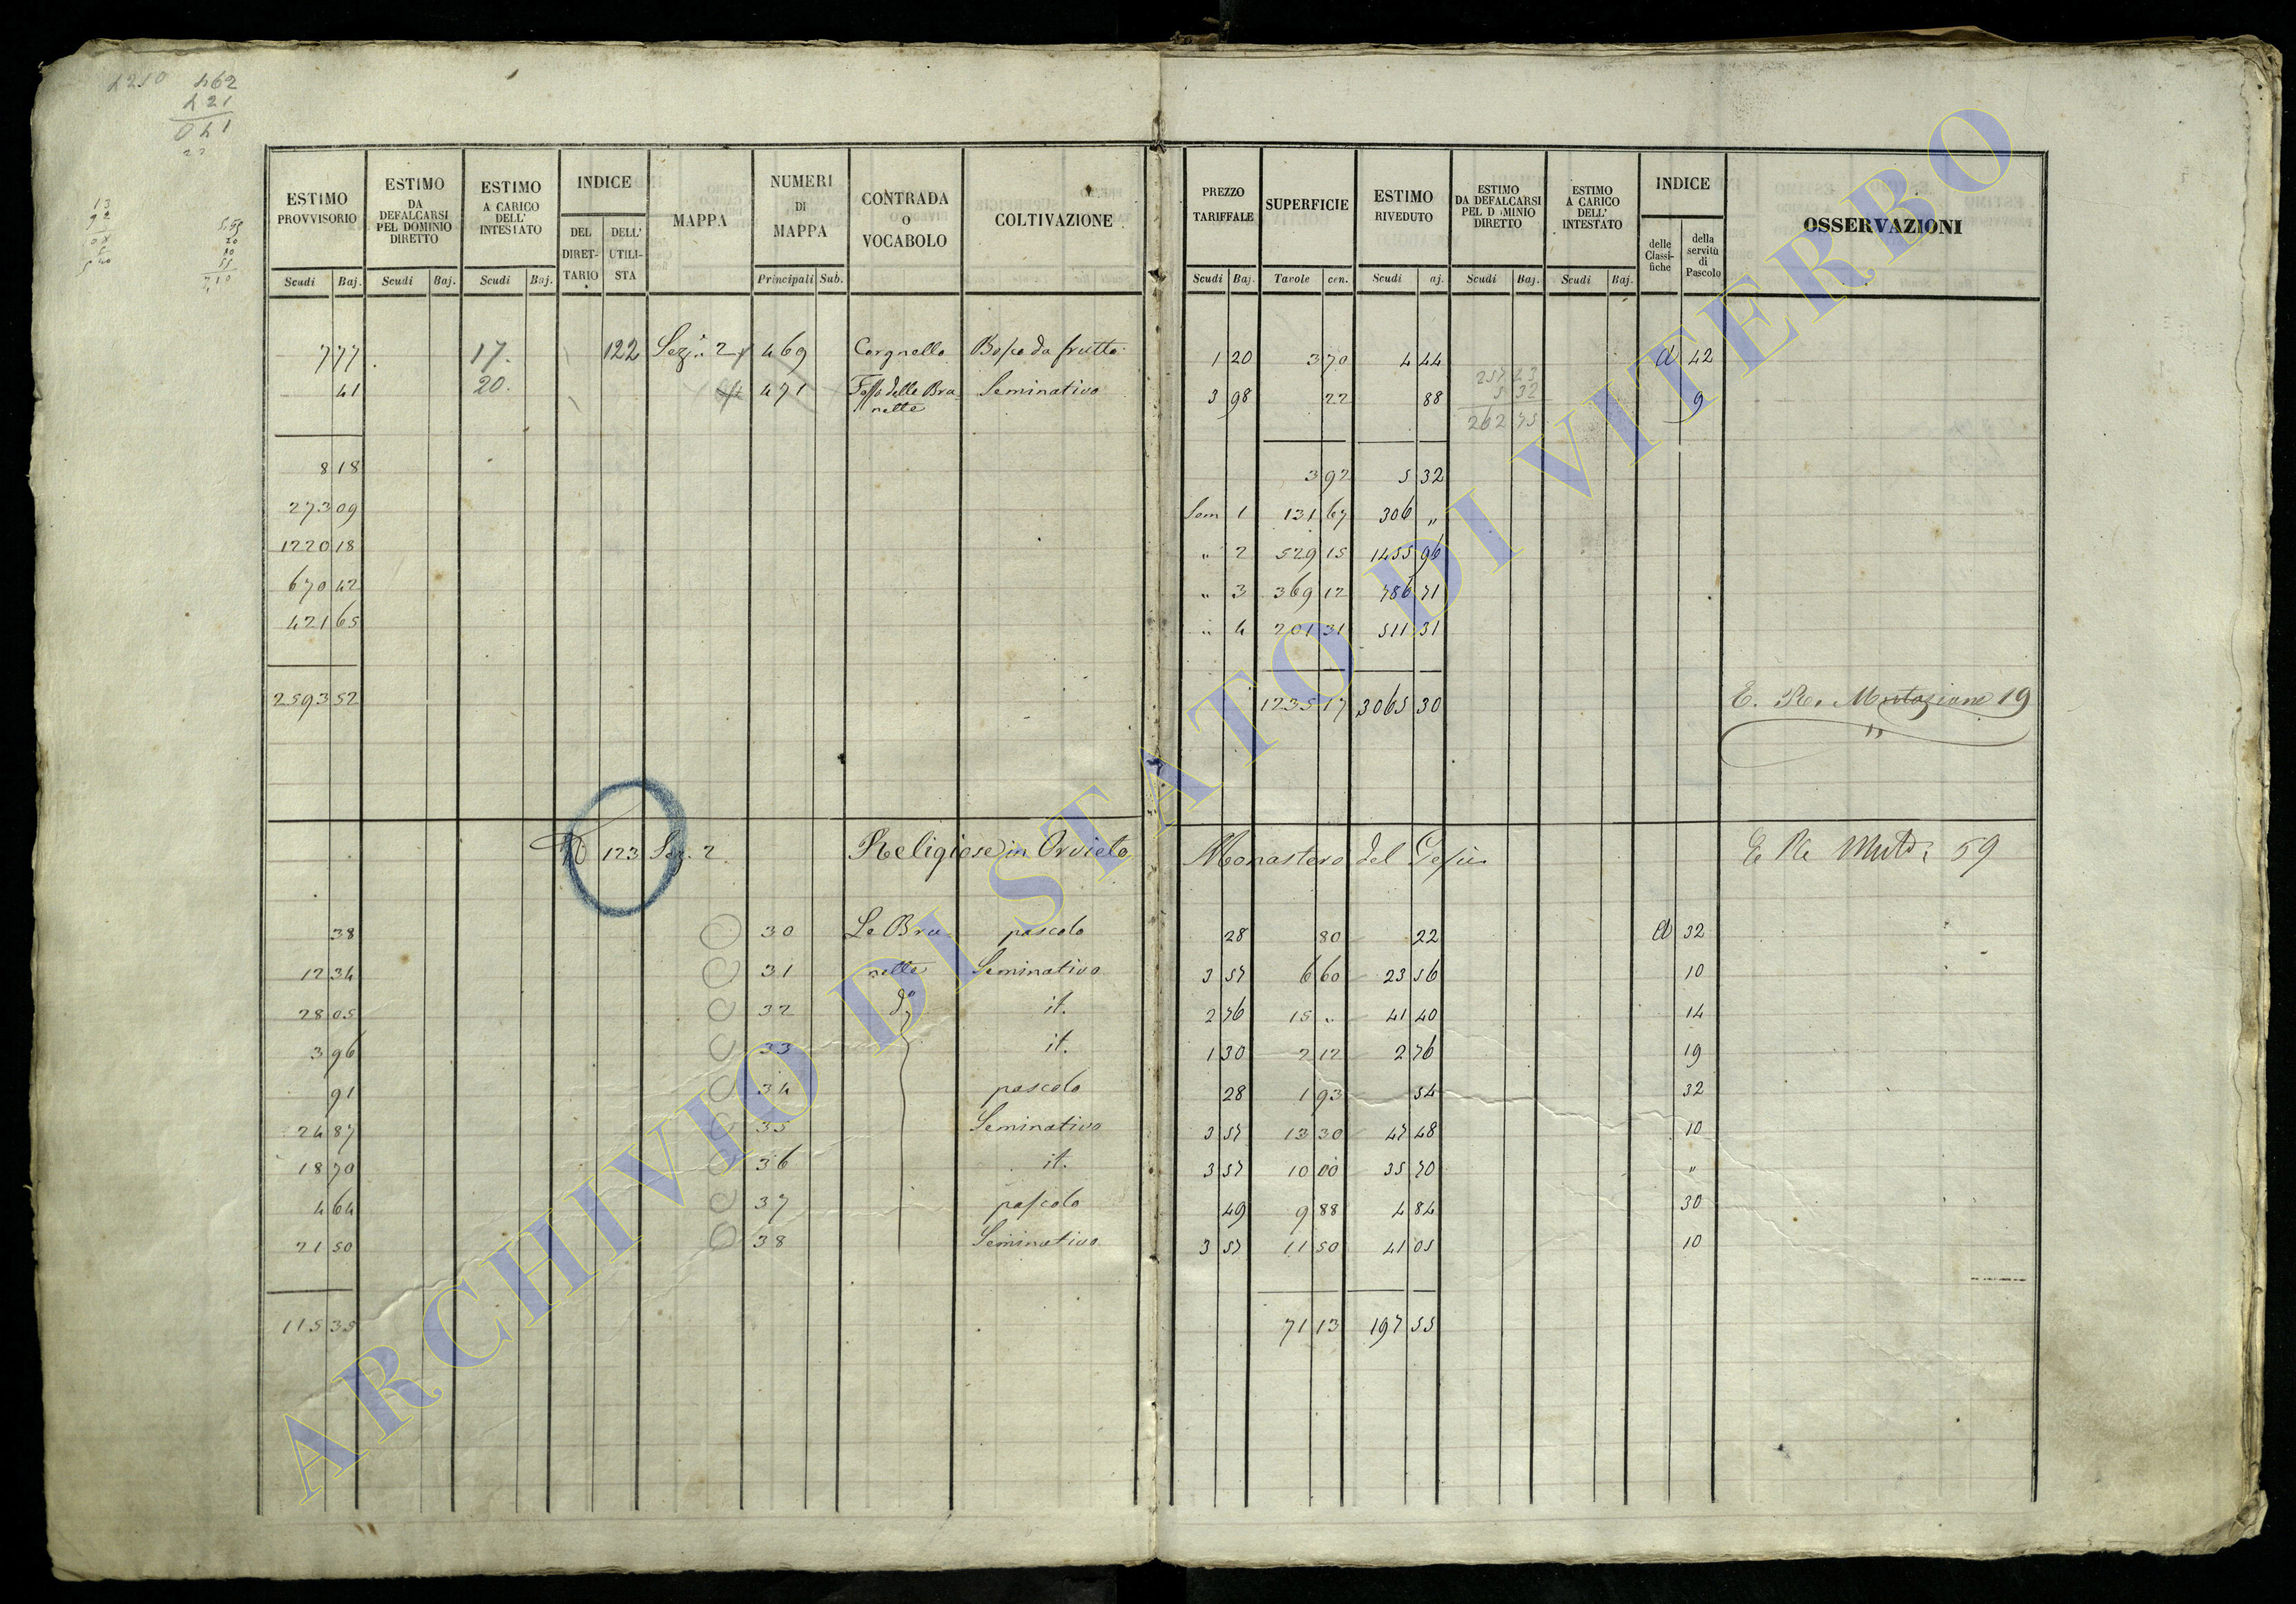 4210 462
421
041
ESTIMO PROVVISORIO | ESTIMO DA DEFALCARSI PEL DOMINIO DIRETTO | ESTIMO A CARICO DELL' INTESTATO | INDICE | MAPPA | NUMERI DI MAPPA | CONTRADA O VOCABOLO | COLTIVAZIONE | PREZZO TARIFFALE | SUPERFICIE | ESTIMO RIVEDUTO | ESTIMO DA DEFALCARSI PEL D MINIO DIRETTO | ESTIMO A CARICO DELL' INTESTATO | INDICE | OSSERVAZIONI
DEL DIRETTARIO | DELL' UTILISTA | delle Classifiche | della servitù di Pascolo
Scudi | Baj. | Scudi | Baj. | Scudi | Baj. | Principali | Sub. | Scudi | Baj. | Tavole | cen. | Scudi | aj. | Scudi | Baj. | Scudi | Baj.
7 77 17. 122 Sez.e 2 469 Corgnello Bosco da frutto 1 20 3 70 4 44 A 42
41 20. 471 Fosso delle Bru- Seminativo 3 98 22 88 9
nelle
257 43
5 32
262 75
8 18 3 92 5 32
273 09 Sem 1 131 67 306 „
1220 18 „ 2 529 15 1455 96
670 42 „ 3 369 12 786 71
421 65 „ 4 201 31 511 31
2593 52 1235 17 3065 30 E. R. Mutazione 19
123 Sez. 2 Religiose in Orvieto Monastero del Gesù E Re Mutd: 59
38 30 Le Bru- pascolo 28 80 22 A 32
12 34 31 nelle Seminativo 3 57 6 60 23 56 10
28 05 32 do it. 2 76 15 „ 41 40 14
3 96 33 it. 1 30 2 12 2 76 19
91 34 pascolo 28 1 93 54 32
24 87 35 Seminativo 3 57 13 30 47 48 10
18 70 36 it. 3 57 10 00 35 70 „
4 64 37 pascolo 49 9 88 4 84 30
21 50 38 Seminativo 3 57 11 50 41 05 10
115 35 71 13 197 55
ARCHIVIO DI STATO DI VITERBO